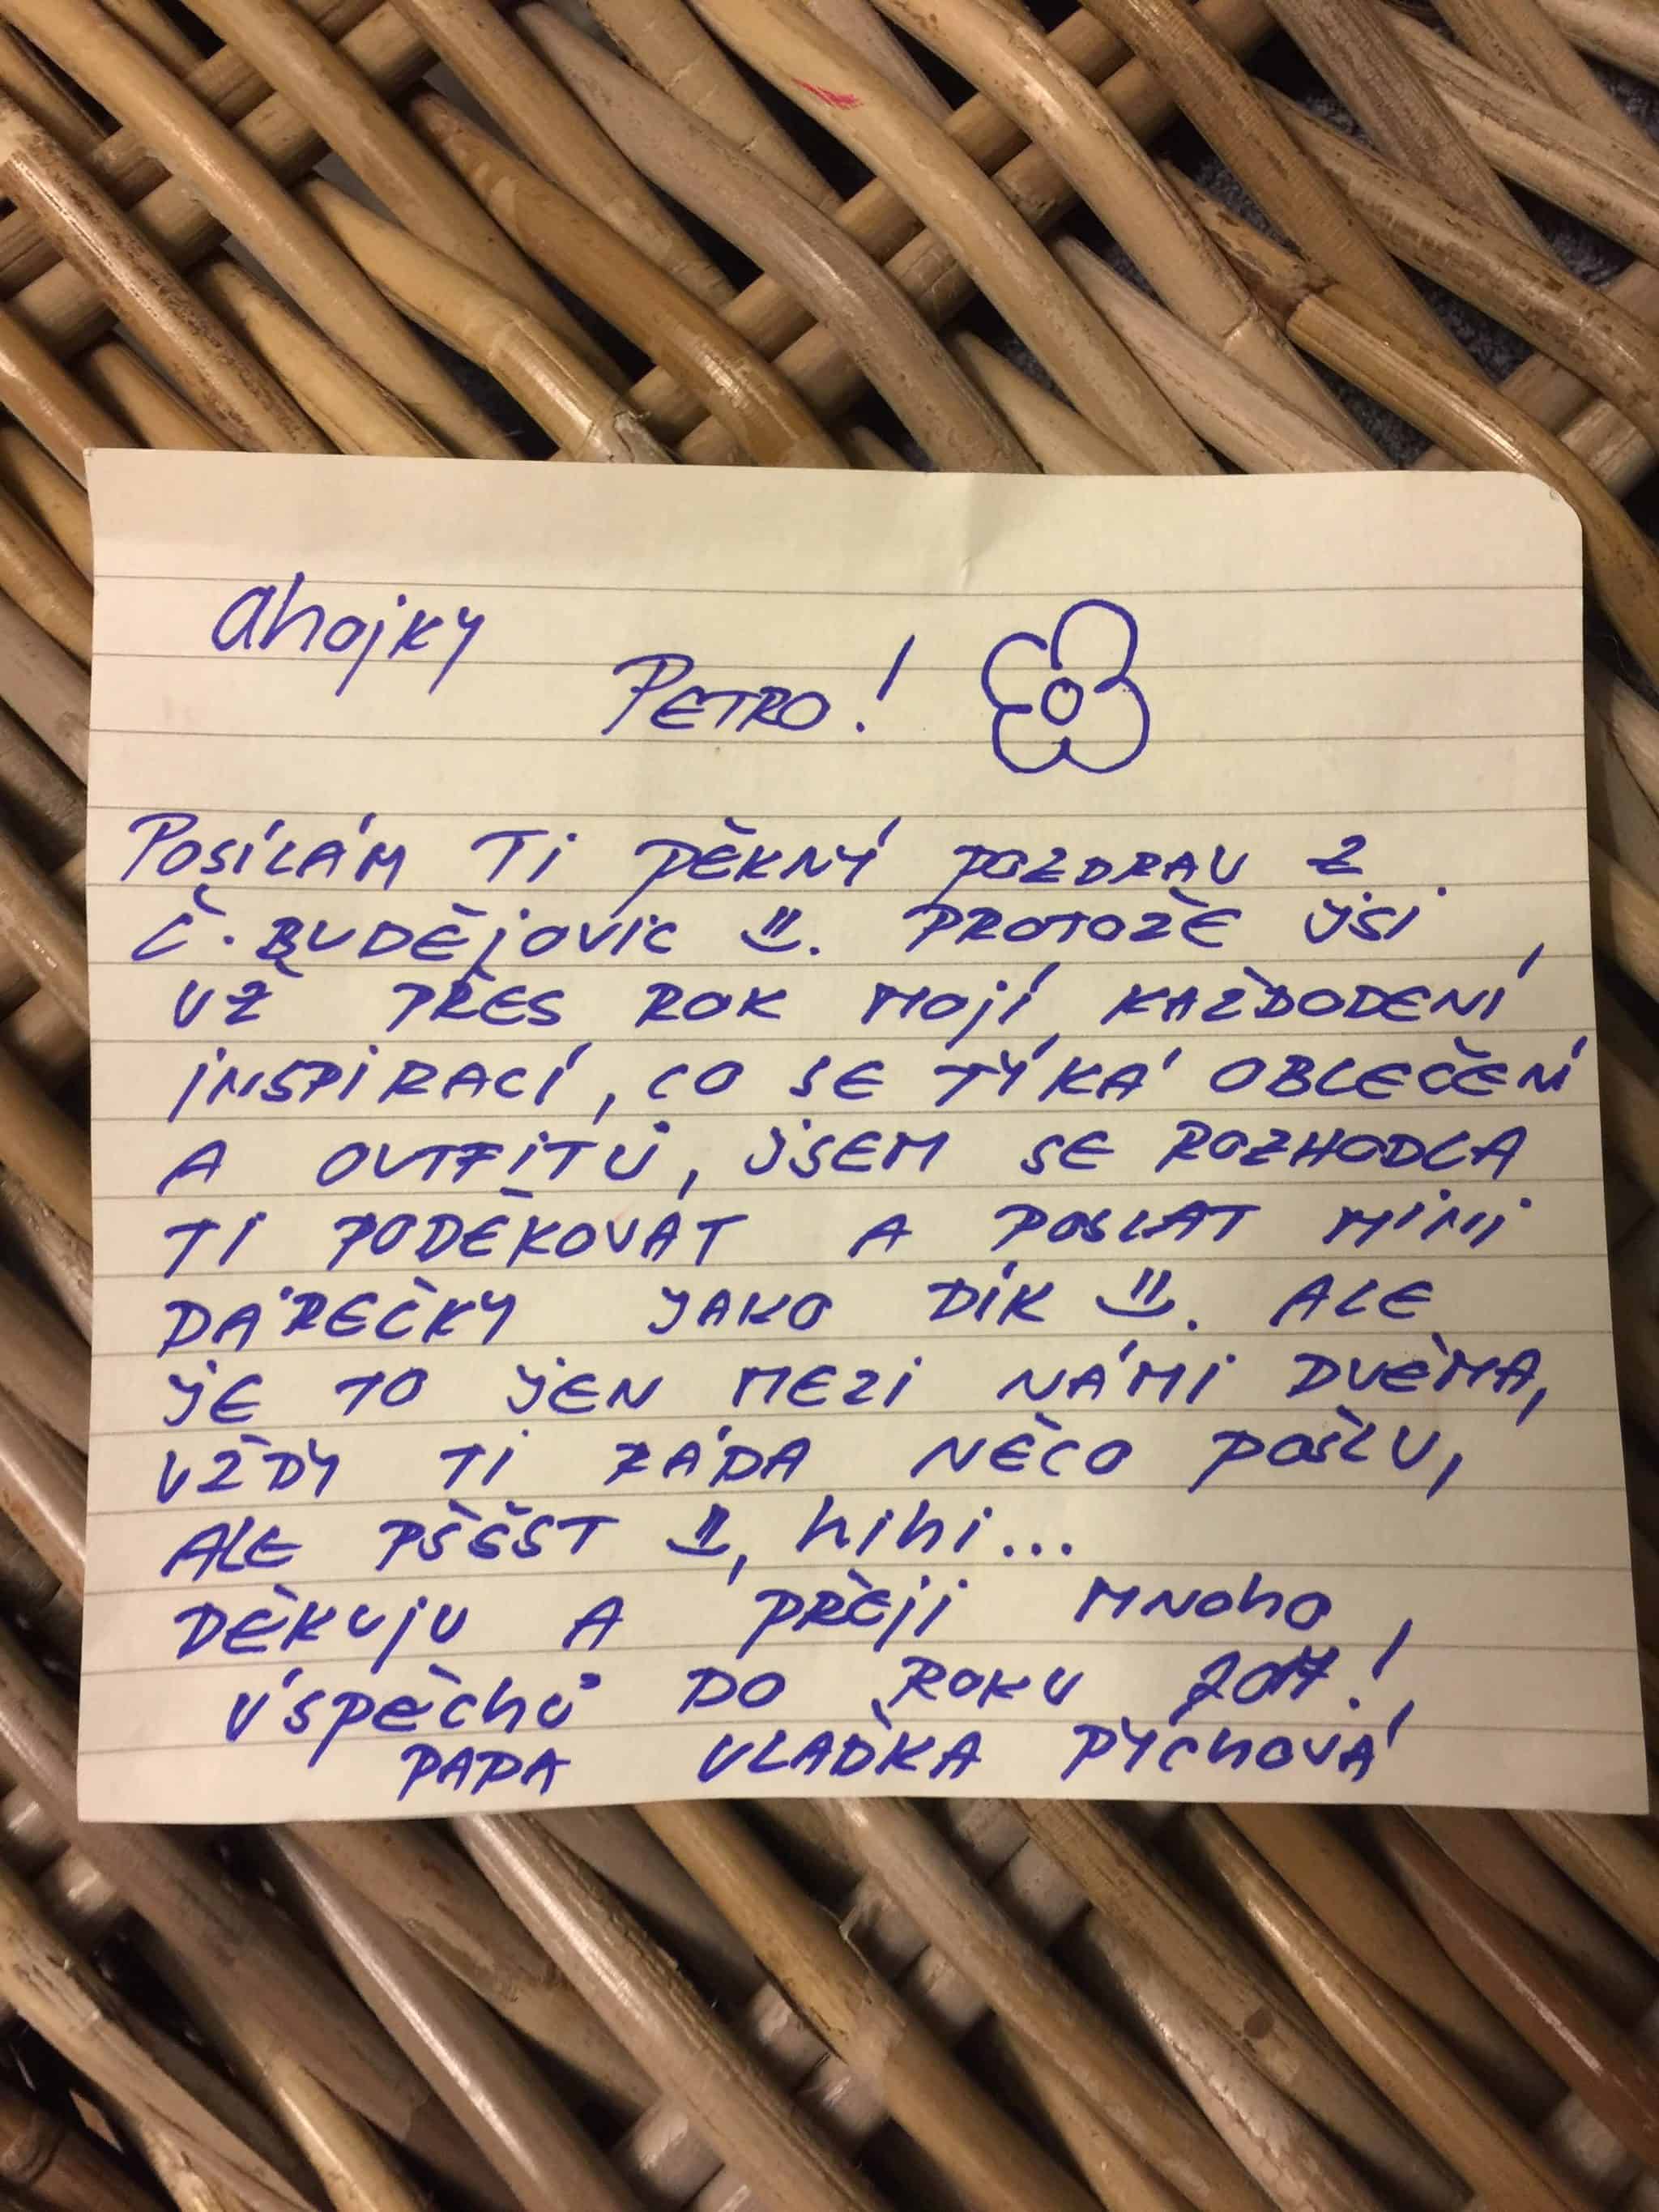 Ahojky
PETRO!
POSÍLÁM Ti PĚKNÝ POZDRAV Z
Č. BUDĚjOViC. PROTOŽE JSi
UŽ PŘES ROK MOjÍ KAŽDODENÍ
iNSPiRACÍ, CO SE TÝKÁ OBLEČENÍ
A OUTFiTŮ, JSEM SE ROZHODLA
Ti PODĚKOVAT A POSLAT MiNi
DÁREČKY JAKO DÍK. ALE
JE TO JEN MEZi NÁMi DVĚMA,
VŽDY Ti RÁDA NĚCO POŠLU,
ALE PŠŠŠT, hihi...
DĚKUjU A PŘEji MNoho
ÚSPĚChŮ DO ROKU 2017!
PAPA VLAĎKA PÝChOVÁ